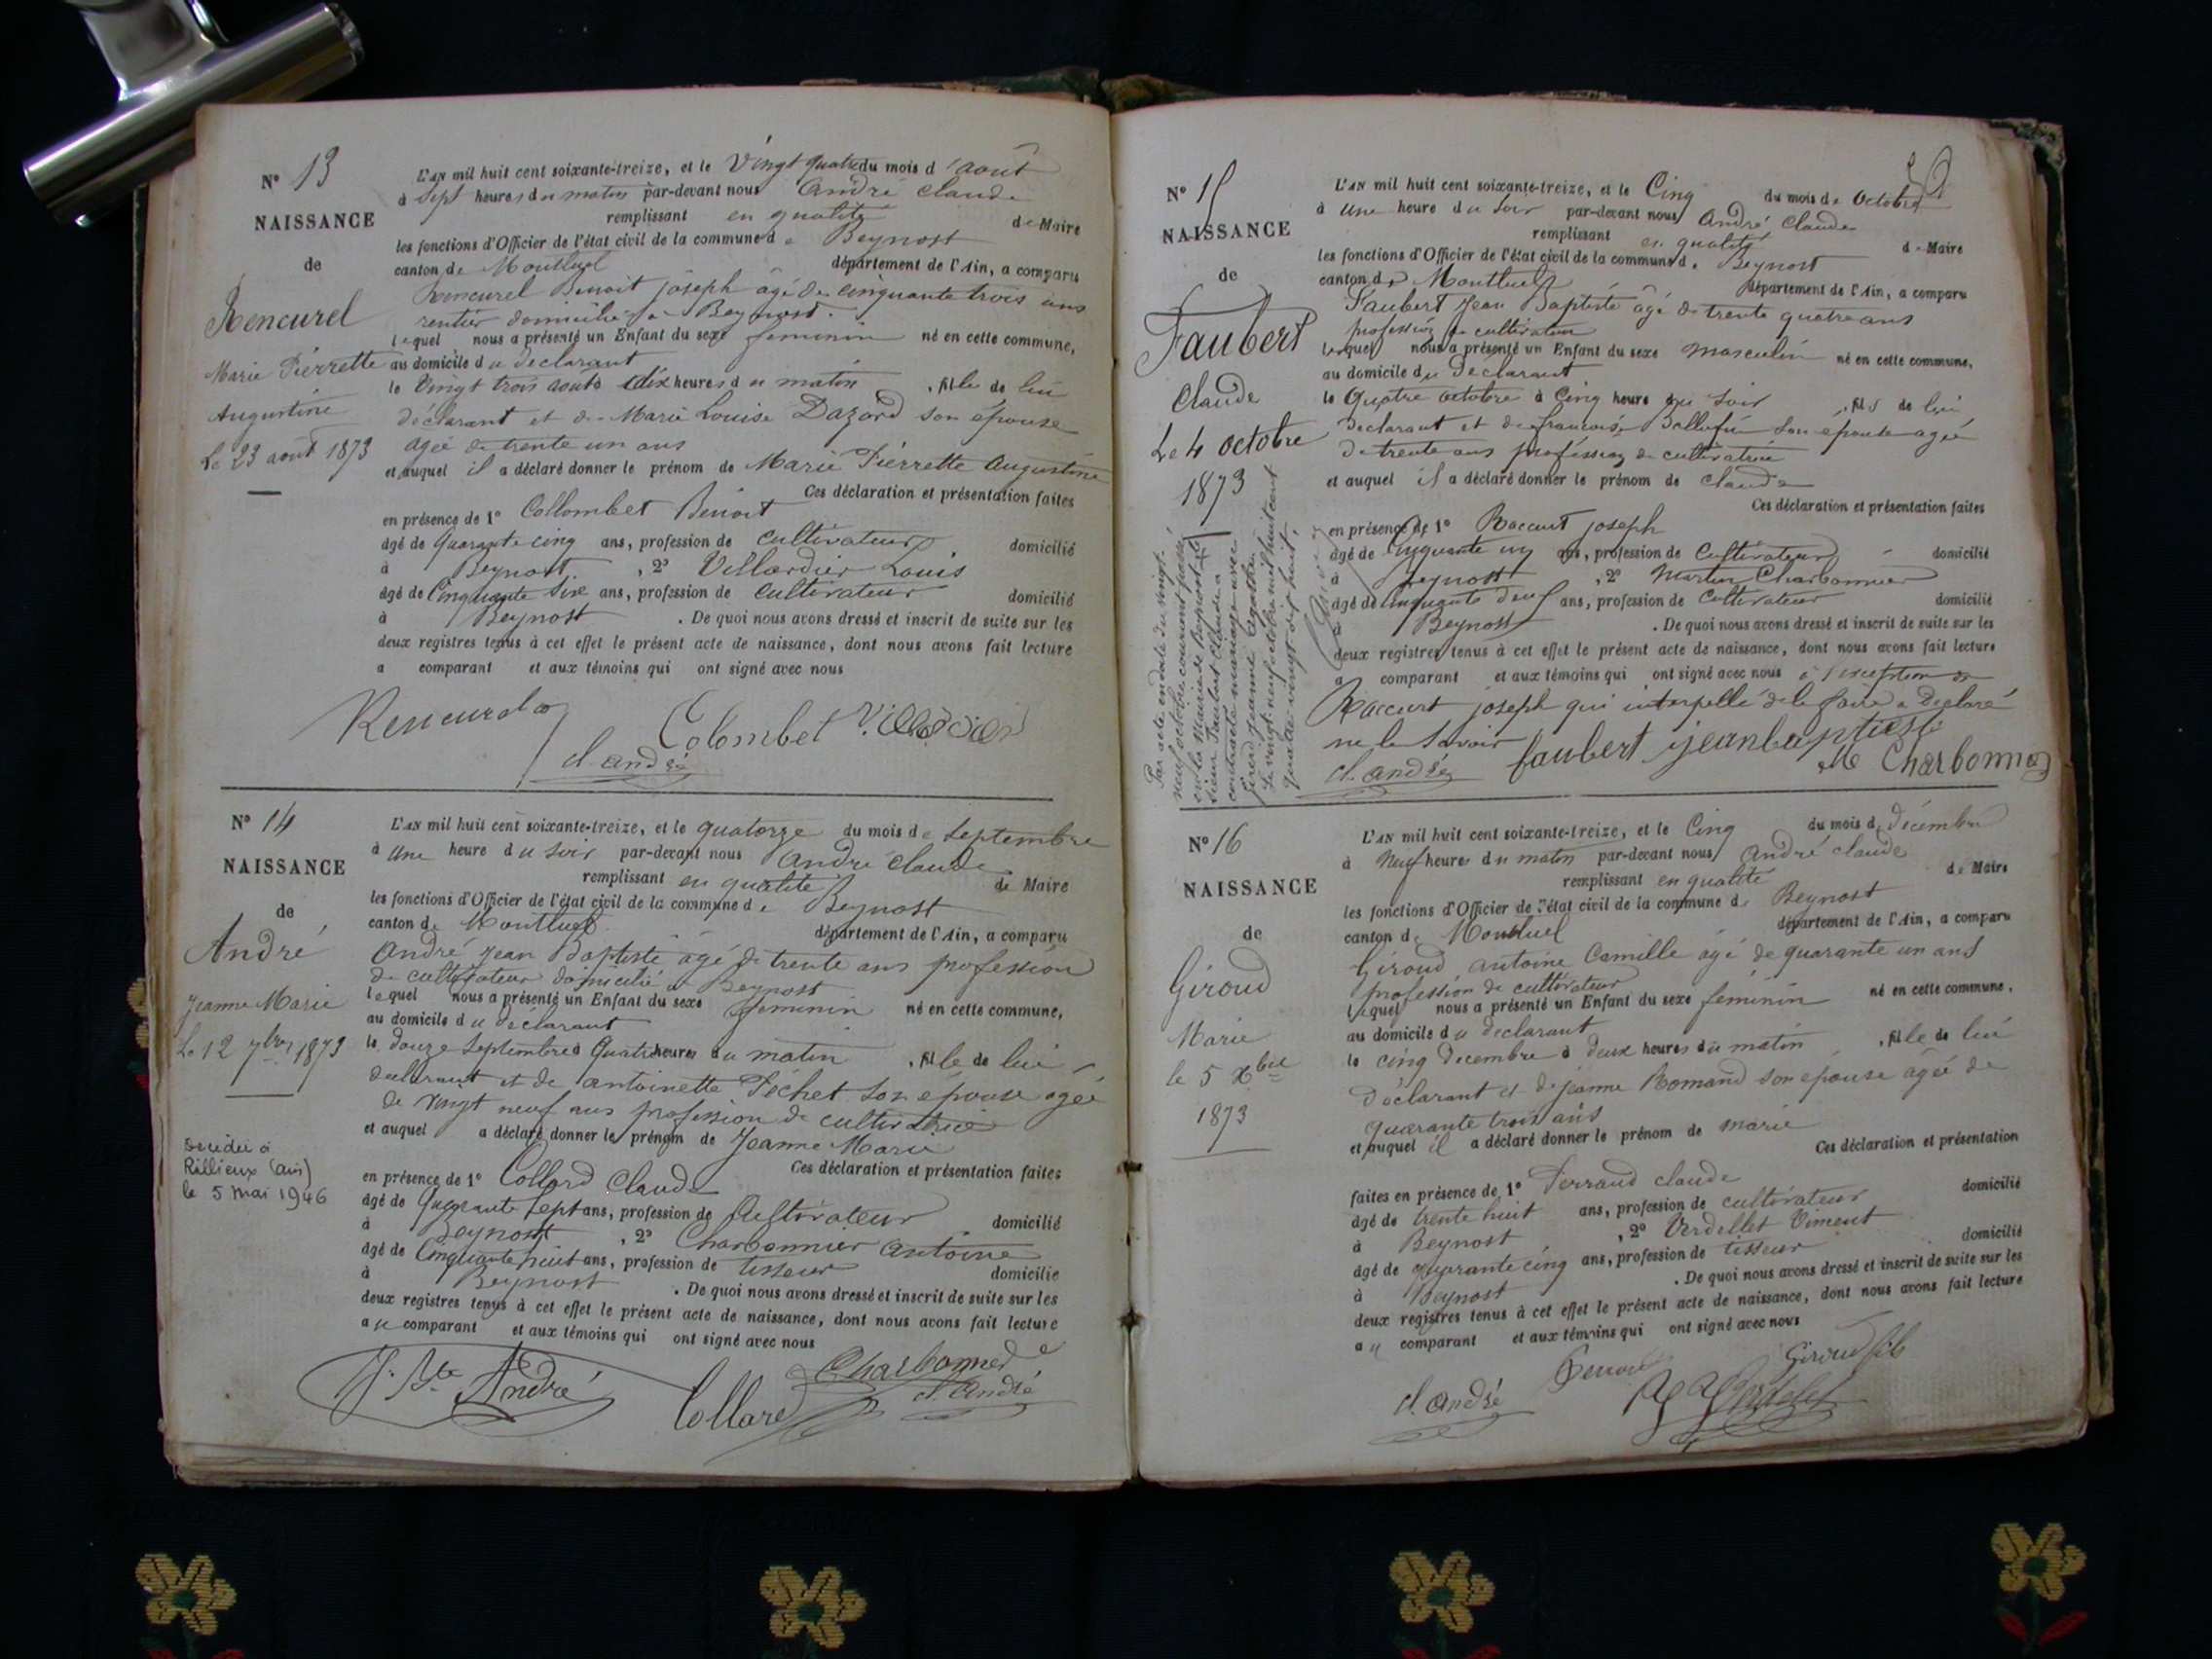 N° 13
NAISSANCE
de
Rencurel
Marie Pierrette
Augustine
Le 23 août 1873
L'AN mil huit cent soixante-treize, et le Vingt quatre du mois d'août
à Sept heures du matin par-devant nous André Claude
remplissant en qualité de Maire
les fonctions d'Officier de l'état civil de la commune de Beynost
canton de Montluel département de l'Ain, a comparu
Rencurel Benoit joseph âgé de cinquante trois ans
rentier domicilié à Beynost.
lequel nous a présenté un Enfant du sexe feminin né en cette commune,
au domicile du déclarant
le Vingt trois août à dix heures du matin, fille de lui
déclarant et de Marie Louise Dazord son épouse
agée de trente un ans
et auquel il a déclaré donner le prénom de Marie Pierrette Augustine
Ces déclaration et présentation faites
en présence de 1° Collombet Benoit
âgé de Quarante cinq ans, profession de cultivateur domicilié
à Beynost, 2° Villardier Louis
âgé de Cinquante Six ans, profession de cultivateur domicilié
à Beynost. De quoi nous avons dressé et inscrit de suite sur les
deux registres tenus à cet effet le présent acte de naissance, dont nous avons fait lecture
a comparant et aux témoins qui ont signé avec nous
Rencurel
Colombet
cl. andré
N° 14
NAISSANCE
de
André
Jeanne Marie
Le 12 7bre 1873
Décédée à
Rillieux (Ain)
le 5 mai 1946
L'AN mil huit cent soixante-treize, et le quatorze du mois de Septembre
à Une heure du Soir par-devant nous André Claude
remplissant en qualité de Maire
les fonctions d'Officier de l'état civil de la commune de Beynost
canton de Montluel département de l'Ain, a comparu
André Jean Baptiste âgé de trente ans profession
de cultivateur domicilié à Beynost
lequel nous a présenté un Enfant du sexe feminin né en cette commune,
au domicile du déclarant
le douze Septembre à Quatre heures du matin, fille de lui
déclarant et de antoinette Péchet Son épouse agée
de vingt neuf ans profession de cultivatrice
et auquel a déclaré donner le prénom de Jeanne Marie
Ces déclaration et présentation faites
en présence de 1° Collard Claude
âgé de Quarante Sept ans, profession de Cultivateur domicilié
à Beynost, 2° Charbonnier Antoine
âgé de Cinquante huit ans, profession de tisseur domicilié
à Beynost. De quoi nous avons dressé et inscrit de suite sur les
deux registres tenus à cet effet le présent acte de naissance, dont nous avons fait lecture
au comparant et aux témoins qui ont signé avec nous
J. Bte André
Collard
Charbonnier
cl. André
N° 15
NAISSANCE
de
Faubert
Claude
Le 4 octobre
1873
Par acte en date du vingt-
neuf octobre courant passé
en la Mairie de Beynost le
sieur Faubert Claude a
contracté mariage avec
Jeanne Agathe
Le vingt neuf octobre mil huit cent
quatre vingt dix huit.
L'AN mil huit cent soixante-treize, et le Cinq du mois de Octobre
à Une heure du Soir par-devant nous André Claude
remplissant en qualité de Maire
les fonctions d'Officier de l'état civil de la commune de Beynost
canton de Montluel département de l'Ain, a comparu
Faubert Jean Baptiste âgé de trente quatre ans
profession de cultivateur
lequel nous a présenté un Enfant du sexe masculin né en cette commune,
au domicile du déclarant
le Quatre octobre à Cinq heure du Soir, fils de lui
Déclarant et de francoise Son épouse agée
de trente ans profession de cultivatrice
et auquel il a déclaré donner le prénom de Claude
Ces déclaration et présentation faites
en présence de 1° Raccurt joseph
âgé de Cinquante un ans, profession de Cultivateur domicilié
à Beynost, 2° Martin Charbonnier
âgé de Cinquante deux ans, profession de Cultivateur domicilié
à Beynost. De quoi nous avons dressé et inscrit de suite sur les
deux registres tenus à cet effet le présent acte de naissance, dont nous avons fait lecture
a comparant et aux témoins qui ont signé avec nous à l'exception de
Raccurt joseph qui interpellé de le faire a déclaré
ne le Savoir
faubert jean baptiste
cl. andré
M Charbonnier
N° 16
NAISSANCE
de
Giroud
Marie
le 5 Xbre
1873
L'AN mil huit cent soixante-treize, et le Cinq du mois de décembre
à Neuf heures du matin par-devant nous André Claude
remplissant en qualité de Maire
les fonctions d'Officier de l'état civil de la commune de Beynost
canton de Montluel département de l'Ain, a comparu
Giroud antoine Camille âgé de quarante un ans
profession de cultivateur
lequel nous a présenté un Enfant du sexe féminin né en cette commune,
au domicile du declarant
le cinq decembre à deux heures du matin, fille de lui
déclarant et de jeanne Romand son épouse âgée de
quarante trois ans
et auquel il a déclaré donner le prénom de marie
Ces déclaration et présentation
faites en présence de 1° Ferraud claude domicilié
âgé de trente huit ans, profession de cultivateur
à Beynost, 2° Verdellet Viment domicilié
âgé de quarante cinq ans, profession de tisseur
à Beynost. De quoi nous avons dressé et inscrit de suite sur les
deux registres tenus à cet effet le présent acte de naissance, dont nous avons fait lecture
au comparant et aux témoins qui ont signé avec nous
Giroud fils
cl. André